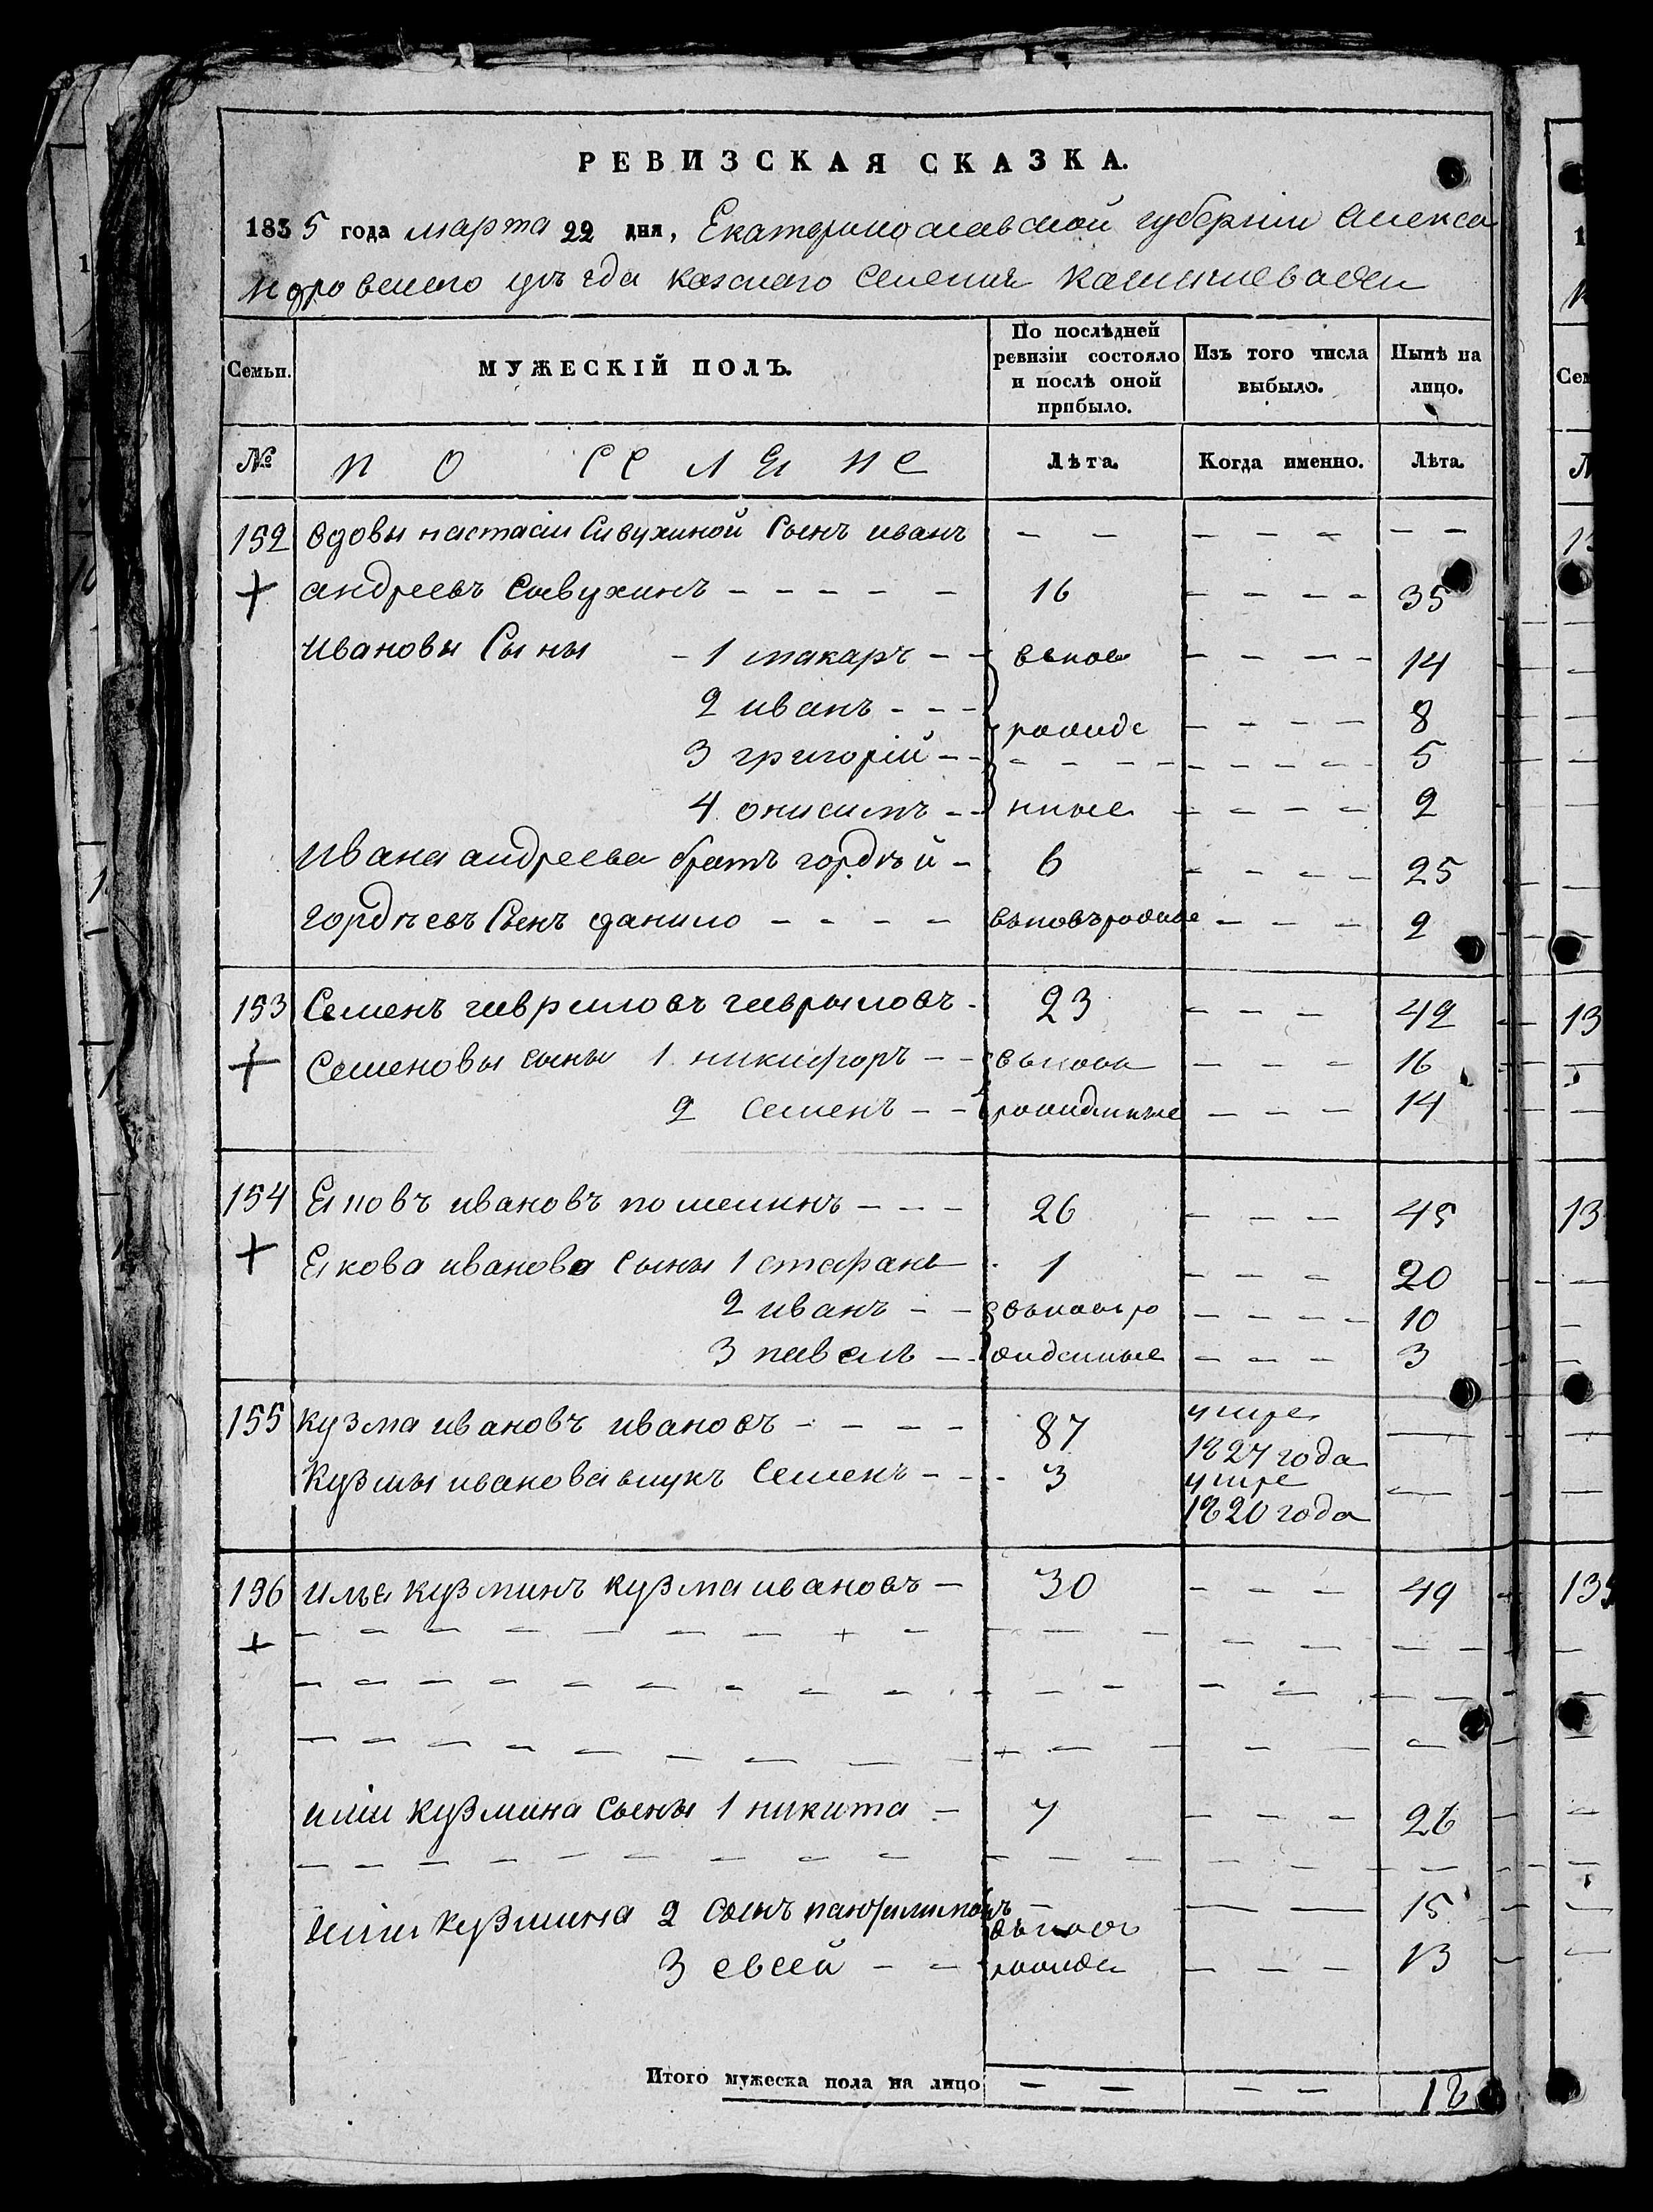 РЕВИЗСКАЯ СКАЗКА.
1835 года марта 22 дня, Екатеринославской губернии Алекса
ндровского уѣзда казенаго селения
Семьи. МУЖЕСКІЙ ПОЛЪ. По послѣдней ревизіи состояло и послѣ оной прибыло. Изъ того числа выбыло. Нынѣ на лицо.
№ поселяне Лѣта. Когда именно. Лѣта.
152 вдовы настасіи Сивухиной Сынъ иванъ - - - - - - - -
+ андреевъ Сивухинъ - - - - - 16 - - - - 35
ивановы Сыны - 1 макаръ - - вьнов - - - - 14
2 иванъ - - - рожде - - - - 8
3 григорій - - - - - - - - - - - 5
4 онисимъ - - нные - - - - 2
ивана андреева братъ гордѣй - 6 - - - - 25
гордѣевъ Сынъ данило - - - - - - - 2
153 Семенъ гавриловъ гаврыловъ - 23 - - - 42
+ Семеновы сыны 1 никифоръ - - вьновь - - - 16
2 Семенъ - - рожденные - - - 14
154 Ековъ ивановъ - - - 26 - - - 45
+ Екова иванова Сыны 1 стефанъ 1 - - - 20
2 иванъ - - вьновьро - - - - 10
3 павелъ - - жденные - - - 3
155 кузма ивановъ ивановъ - - - - 87 умре 1827 года —
Кузмы иванова внукъ Семенъ - - - 3 умре 1820 года —
156 илья кузминъ кузма ивановъ - 30 - - - 49
+ - - - - - - - + - - - - - - - -
- - - - - - - - - - - - - - - - -
- - - - - - - - - + - - - - -
иліи кузмина Сыны 1 никита - 7 - - - 26
- - - - - - - - - - - - - - - -
иліи кузмина 2 Сынъ панфилимонъ - — — 15
вьновь
3 евсей - - рожде - - - 13
Итого мужеска пола на лицо - - - - 18